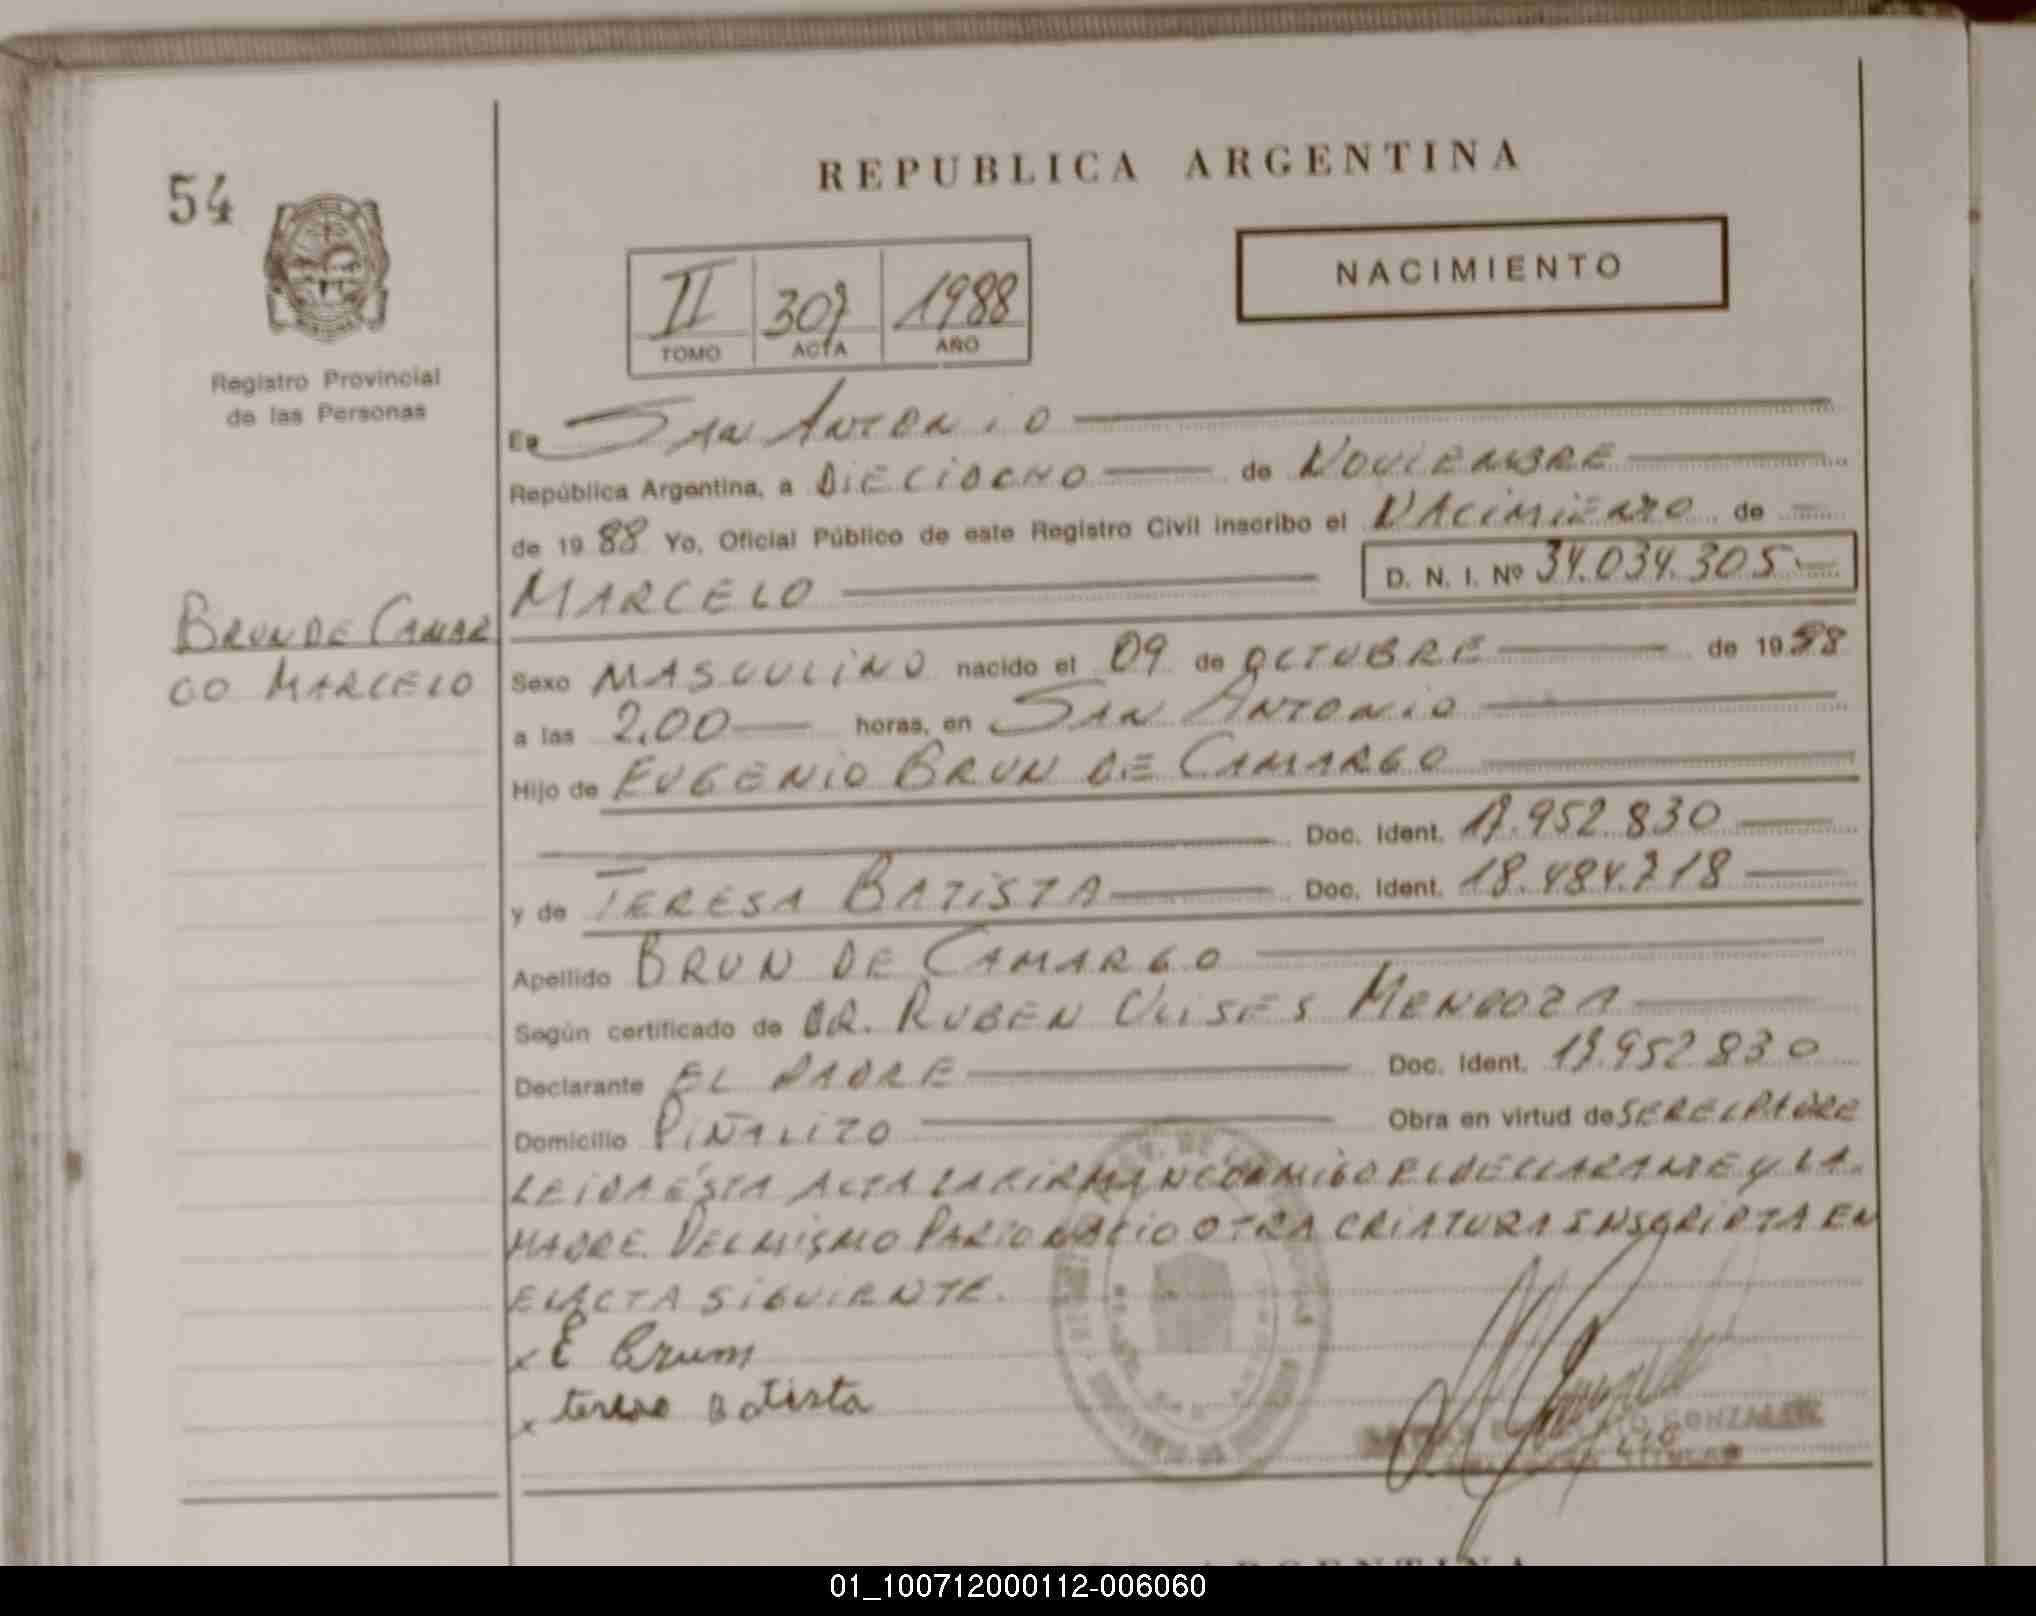 54
REPUBLICA ARGENTINA
NACIMIENTO
II 307 1988
TOMO ACTA AÑO
Registro Provincial
de las Personas
En SAN ANTONIO
República Argentina, a DIECIOCHO de NOVIEMBRE
de 1988 Yo, Oficial Público de este Registro Civil inscribo el NACIMIENTO de
MARCELO D. N. I. Nº 34.034.305
BRUN DE CAMAR
GO MARCELO
Sexo MASCULINO nacido el 09 de OCTUBRE de 1988
a las 2,00 horas, en SAN ANTONIO
Hijo de EUGENIO BRUN DE CAMARGO
Doc. Ident. 17.952.830
y de TERESA BATISTA Doc. Ident. 18.484.718
Apellido BRUN DE CAMARGO
Según certificado de DR. RUBEN ULISES MENDOZA
Declarante EL PADRE Doc. Ident. 17.952.830
Domicilio PIÑALITO Obra en virtud de SER EL PADRE
LEIDA ÉSTA ACTA LA FIRMAN CONMIGO EL DECLARANTE Y LA
MADRE. DEL MISMO PARTO NACIO OTRA CRIATURA INSCRIPTA EN
EL ACTA SIGUIENTE.
x E Brum
x teresa Batista
GONZALEZ
ARGENTINA
01_100712000112-006060